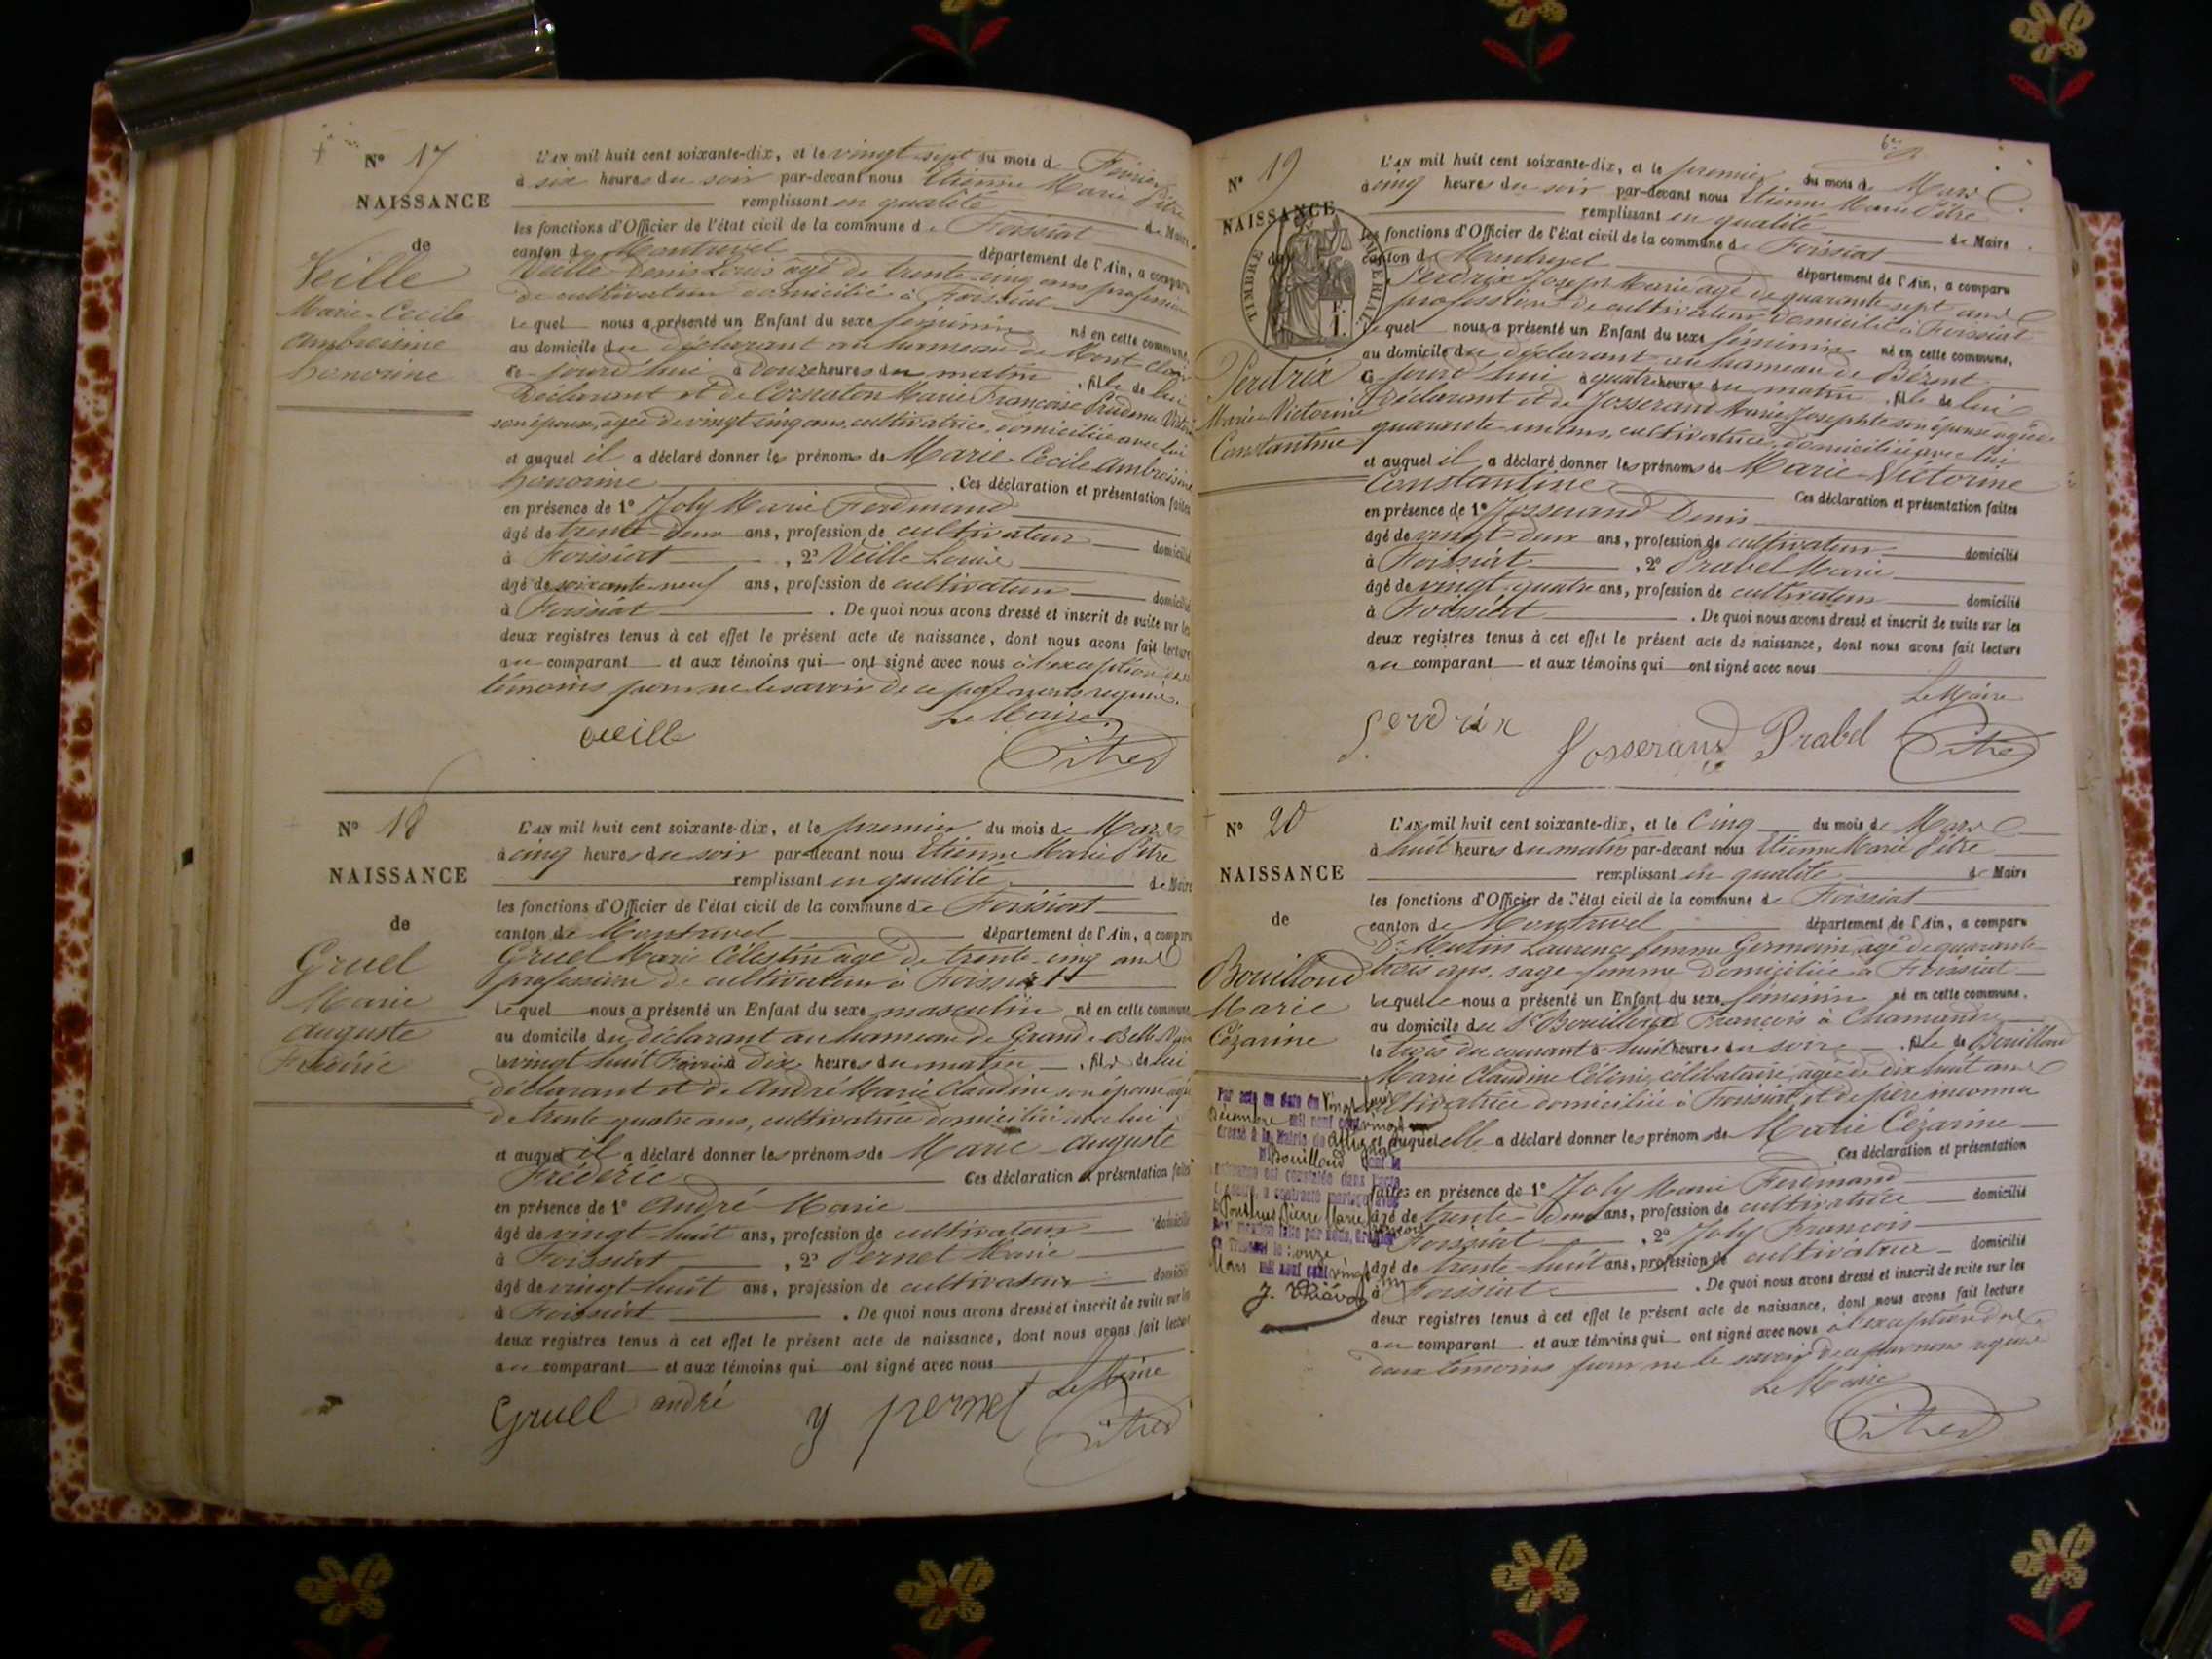 N° 17
NAISSANCE
de
Veille
Marie-Cecile
Ambroisine
honorine
L'AN mil huit cent soixante-dix, et le vingt-sept du mois de Février
à six heures du soir par-devant nous Etienne Marie Pitre
remplissant en qualité de Maire
les fonctions d'Officier de l'état civil de la commune de Foissiat
canton de Montrevel département de l'Ain, a comparu
Veille Denis Louis âgé de trente-cinq ans profession
de cultivateur domicilié à Foissiat
Lequel nous a présenté un Enfant du sexe féminin né en cette commune,
au domicile du déclarant au hameau de Mont-Clair
Ce jourd'hui à Douze heures du matin, fille de lui
Déclarant et de Corraton Marie Françoise Prudence
son épouse, agée de vingt cinq ans, cultivatrice, domiciliée avec lui
et auquel il a déclaré donner les prénoms de Marie Cecile Ambroisine
honorine. Ces déclaration et présentation faites
en présence de 1° Joly Marie Ferdinand
âgé de trente-deux ans, profession de cultivateur domicilié
à Foissiat, 2° Veille Louis
âgé de soixante-neuf ans, profession de cultivateur domicilié
à Foissiat. De quoi nous avons dressé et inscrit de suite sur les
deux registres tenus à cet effet le présent acte de naissance, dont nous avons fait lecture
au comparant et aux témoins qui ont signé avec nous à l'exception des
témoins pour ne le savoir de ce par nous requis.
Le Maire
veille Pitre
N° 18
NAISSANCE
de
Gruel
Marie
auguste
Frédéric
L'AN mil huit cent soixante-dix, et le premier du mois de Mars
à cinq heures du soir par-devant nous Etienne Marie Pitre
remplissant en qualité de Maire
les fonctions d'Officier de l'état civil de la commune de Foissiat
canton de Montrevel département de l'Ain, a comparu
Gruel Marie Célestin âgé de trente-cinq ans
profession de cultivateur à Foissiat
Lequel nous a présenté un Enfant du sexe masculin né en cette commune,
au domicile du déclarant au hameau de Grand-Belle
le vingt huit Février à Dix heures du matin, fils de lui
déclarant et de André Marie Claudine son épouse agée
de trente quatre ans, cultivatrice domiciliée avec lui
et auquel il a déclaré donner les prénoms de Marie auguste
Fréderic Ces déclaration et présentation faites
en présence de 1° André Marie
âgé de vingt-huit ans, profession de cultivateur domicilié
à Foissiat, 2° Pernet Marie
âgé de vingt-huit ans, profession de cultivateur domicilié
à Foissiat. De quoi nous avons dressé et inscrit de suite sur les
deux registres tenus à cet effet le présent acte de naissance, dont nous avons fait lecture
au comparant et aux témoins qui ont signé avec nous
Le Maire
Gruel andré y pernet Pitre
N° 19
NAISSANCE
de
TIMBRE IMPERIAL
Perdrix
Marie-Victorine
Constantine
L'AN mil huit cent soixante-dix, et le premier du mois de Mars
à cinq heures du soir par-devant nous Etienne Marie Pitre
remplissant en qualité de Maire
les fonctions d'Officier de l'état civil de la commune de Foissiat
canton de Montrevel département de l'Ain, a comparu
Perdrix Joseph Marie âgé de quarante-sept ans
profession de cultivateur domicilié à Foissiat
Lequel nous a présenté un Enfant du sexe féminin né en cette commune,
au domicile du déclarant au hameau de Bézent
Ce jourd'hui à quatre heures du matin, fille de lui
Déclarant et de Josserand Marie Josephte son épouse agée de
quarante un ans, cultivatrice, domiciliée avec lui
et auquel il a déclaré donner les prénoms de Marie-Victorine
Constantine Ces déclaration et présentation faites
en présence de 1° Josserand Denis
âgé de vingt-deux ans, profession de cultivateur domicilié
à Foissiat, 2° Prabel Marie
âgé de vingt-quatre ans, profession de cultivateur domicilié
à Foissiat. De quoi nous avons dressé et inscrit de suite sur les
deux registres tenus à cet effet le présent acte de naissance, dont nous avons fait lecture
au comparant et aux témoins qui ont signé avec nous
Le Maire
Perdrix Josserand Prabel Pitre
N° 20
NAISSANCE
de
Bouilloud
Marie
Cézarine
L'AN mil huit cent soixante-dix, et le Cinq du mois de Mars
à huit heures du matin par-devant nous Etienne Marie Pitre
remplissant en qualité de Maire
les fonctions d'Officier de l'état civil de la commune de Foissiat
canton de Montrevel département de l'Ain, a comparu
De Mutin Laurence femme Germain, agé de quarante-
trois ans, sage-femme domiciliée à Foissiat
Lequelle nous a présenté un Enfant du sexe féminin né en cette commune,
au domicile du Sr Bouilloud François à Chamandre
le trois du courant à huit heures du soir, fille de Bouilloud
Marie Claudine Célénie, célibataire, agée de dix huit ans
cultivatrice domiciliée à Foissiat et de père inconnu
et auquel elle a déclaré donner les prénoms de Marie Cézarine
Ces déclaration et présentation
faites en présence de 1° Joly Marie Ferdinand
âgé de trente-deux ans, profession de cultivateur domicilié
à Foissiat, 2° Joly François
âgé de trente-huit ans, profession de cultivateur domicilié
à Foissiat. De quoi nous avons dressé et inscrit de suite sur les
deux registres tenus à cet effet le présent acte de naissance, dont nous avons fait lecture
au comparant et aux témoins qui ont signé avec nous à l'exception des
deux témoins pour ne le savoir de ce par nous requis
Le Maire
Pitre
Par acte en date du vingt
Décembre mil neuf cent vingt
dressé à la Mairie de
Bouilloud dont la
naissance est constatée dans l'acte
a contracté mariage avec
Ponthus Pierre Marie François
mention faite par nous, Greffier
le onze
Mars mil neuf cent vingt un